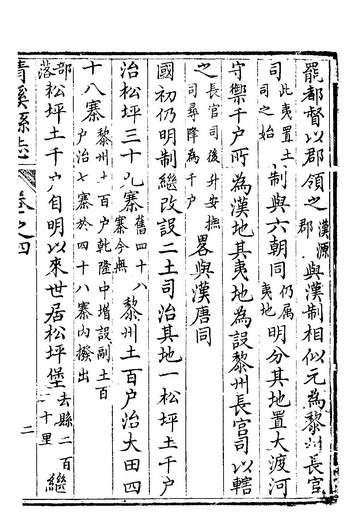 罷都督以郡領之漢源郡與漢制相似元為黎州長官
司此夷置土司之始制與六朝同仍屬夷地明分其地置大渡河
守禦千戶所為漢地其夷地為設黎州長官司以轄
之長官司後升安撫司尋降為千戶畧與漢唐同
國初仍明制繼改設二土司治其地一松坪土千戶
治松坪三十九寨舊四十八寨今無黎州土百戶治大田四
十八寨黎州土百戶乾隆中增設副土百戶治七寨於四十八寨內撥出
部落松坪土千戶自明以來世居松坪堡去縣二百十里繼
清溪縣志 卷之四 二